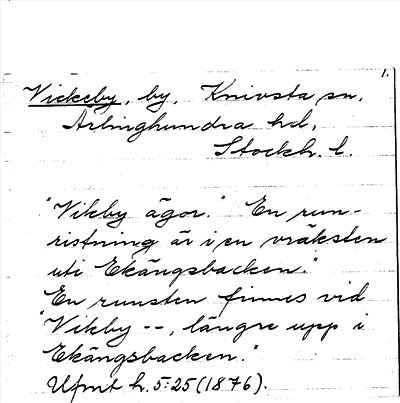 1.
Vickeby, by, Knivsta sn,
Ärlinghundra hd,
Stockh. l.
"Vikby ägor." En run-
ristning är i en vräksten
uti Ekängsbacken."
En runsten finnes vid
"Vikby --, längre upp i
Ekängsbacken."
Ufmt h. 5:25 (1876).